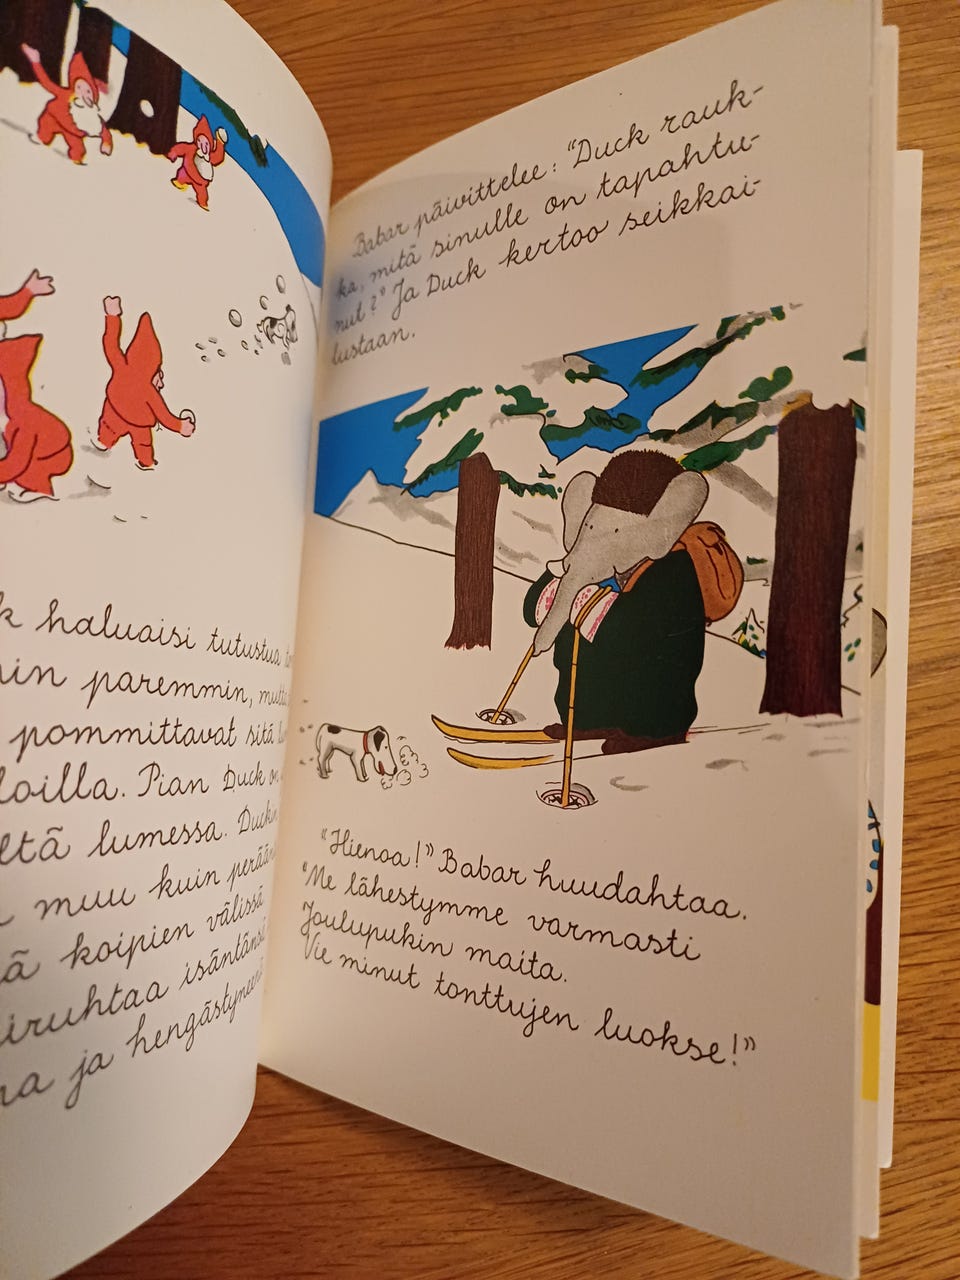 haluaisi tutustua
paremmin,
pommittavat sitä
Pian Duck on
lumessa.
muu kuin
koipien välissä
isäntänsä
ja
Babar päivittelee: "Duck rauk-
ka, mitä sinulle on tapahtu-
nut?" Ja Duck kertoo seikkai-
lustaan.
"Hienoa!" Babar huudahtaa.
"Me lähestymme varmasti
Joulupukin maita.
Vie minut tonttujen luokse!"